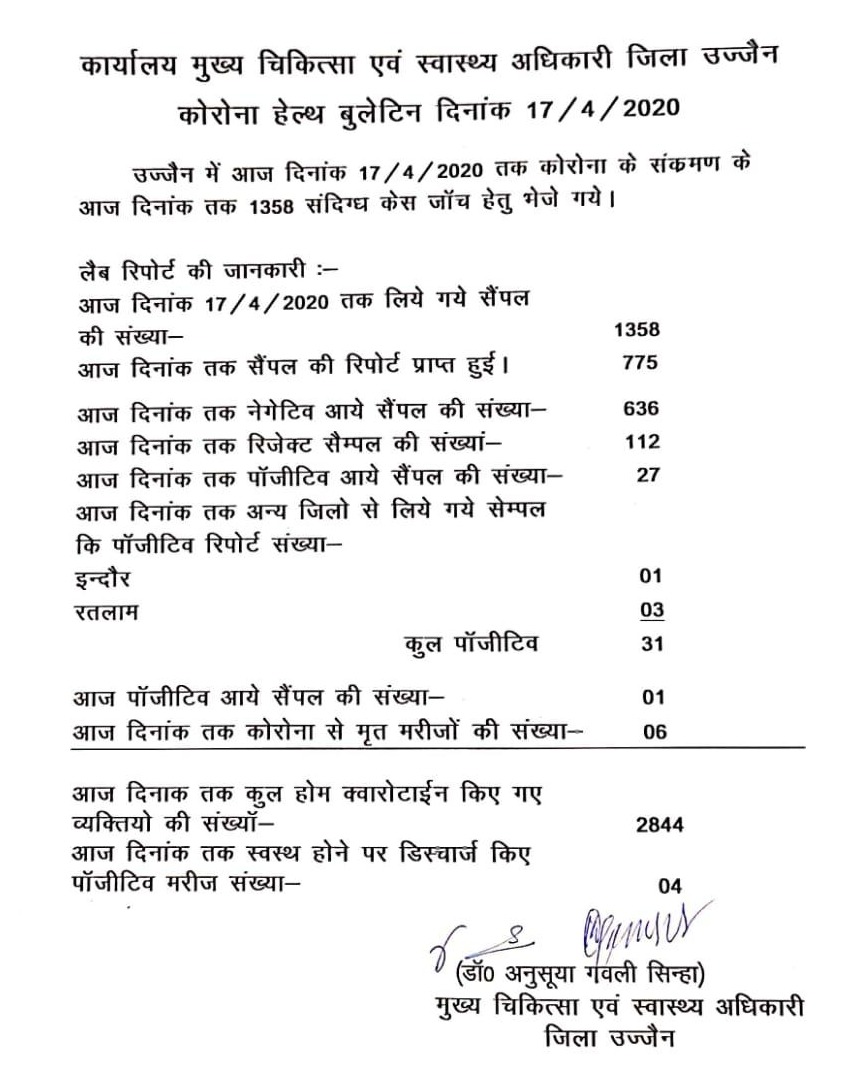 कार्यालय मुख्य चिकित्सा एवं स्वास्थ्य अधिकारी जिला उज्जैन
कोरोना हेल्थ बुलेटिन दिनांक 17/4/2020
उज्जैन में आज दिनांक 17/4/2020 तक कोरोना के संकमण के
आज दिनांक तक 1358 संदिग्ध केस जॉच हेतु भेजे गये।
लैब रिपोर्ट की जानकारी :–
आज दिनांक 17/4/2020 तक लिये गये सैंपल
की संख्या– 1358
आज दिनांक तक सैंपल की रिपोर्ट प्राप्त हुई। 775
आज दिनांक तक नेगेटिव आये सैंपल की संख्या– 636
आज दिनांक तक रिजेक्ट सैम्पल की संख्यां– 112
आज दिनांक तक पॉजीटिव आये सैंपल की संख्या– 27
आज दिनांक तक अन्य जिलो से लिये गये सेम्पल
कि पॉजीटिव रिपोर्ट संख्या–
इन्दौर 01
रतलाम 03
कुल पॉजीटिव 31
आज पॉजीटिव आये सैंपल की संख्या– 01
आज दिनांक तक कोरोना से मृत मरीजों की संख्या– 06
आज दिनाक तक कुल होम क्वारोटाईन किए गए
व्यक्तियो की संख्यॉ– 2844
आज दिनांक तक स्वस्थ होने पर डिस्चार्ज किए
पॉजीटिव मरीज संख्या– 04
(डॉ0 अनुसूया गवली सिन्हा)
मुख्य चिकित्सा एवं स्वास्थ्य अधिकारी
जिला उज्जैन